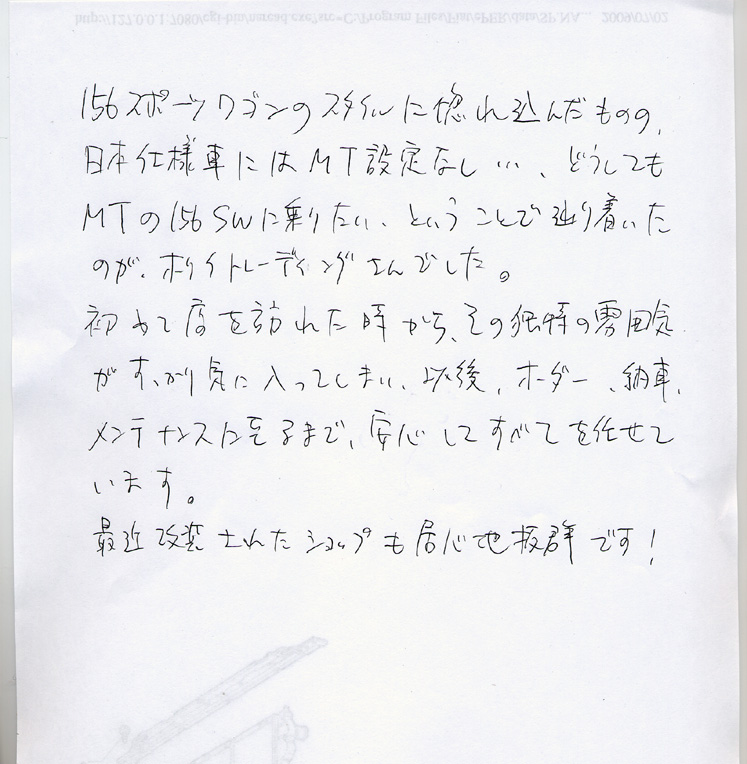 156スポーツワゴンのスタイルに惚れ込んだものの、
日本仕様車にはMT設定なし…、どうしても
MTの156SWに乗りたい、ということで辿り着いた
のが、ホリイトレーディングさんでした。
初めて店を訪れた時から、その独特の雰囲気
がすっかり気に入ってしまい、以後、オーダー、納車、
メンテナンスに至るまで、安心してすべてを任せて
います。
最近改装されたショップも居心地抜群です!